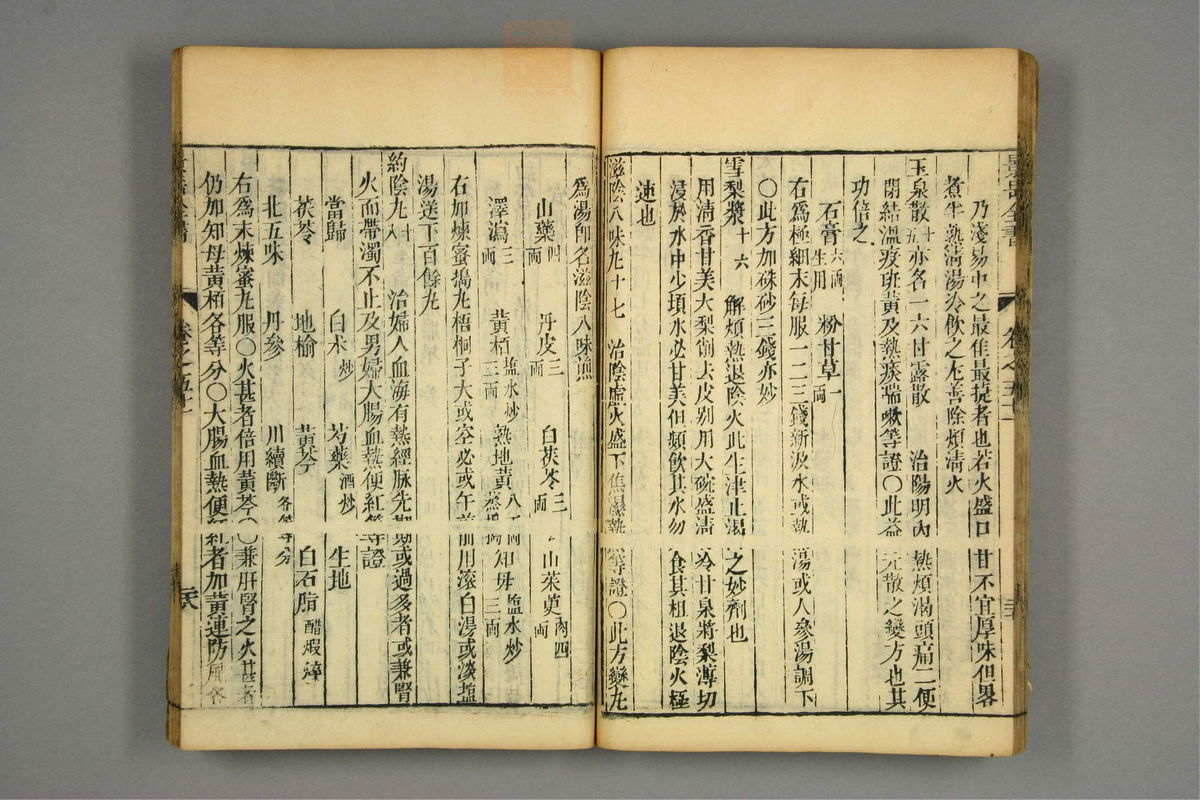 乃淺易中之最佳最捷者也若火盛口甘不宜厚味但畧
煮半熟清湯冷飲之尤善除煩清火
玉泉散十五亦名一六甘露散 治陽明內熱煩渴頭痛二便
閉結溫疫斑黃及熱痰喘嗽等證〇此益元散之變方也其
功倍之
石膏六両生用 粉甘草一両
右爲極細末每服一二三錢新汲水或熱湯或人參湯調下
〇此方加硃砂三錢亦妙
雪梨漿十六 解煩熱退陰火此生津止渴之妙劑也
用清香甘美大梨削去皮别用大碗盛清冷甘泉將梨薄切
浸於水中少頃水必甘美但頻飲其水勿食其柤退陰火極
速也
滋陰八味丸十七 治陰虛火盛下焦濕熱等證〇此方變丸
爲湯卽名滋陰八味煎
山藥四両 丹皮三両 白茯苓三両 山茱萸肉四両
澤瀉三両 黃栢鹽水炒三両 熟地黃八両蒸搗 知母鹽水炒三両
右加煉蜜搗丸梧桐子大或空心或午前用滚白湯或淡鹽
湯送下百餘丸
約陰丸十八 治婦人血海有熱經脉先期或過多者或兼腎
火而帶濁不止及男婦大腸血熱便紅等證
當歸 白朮炒 芍藥酒炒 生地
茯苓 地榆 黃芩 白石脂醋煆淬
北五味 丹參 川續斷各等分
右爲末煉蜜丸服〇火甚者倍用黃芩〇兼肝腎之火甚者
仍加知母黃栢各等分〇大腸血熱便紅者加黃連防風各